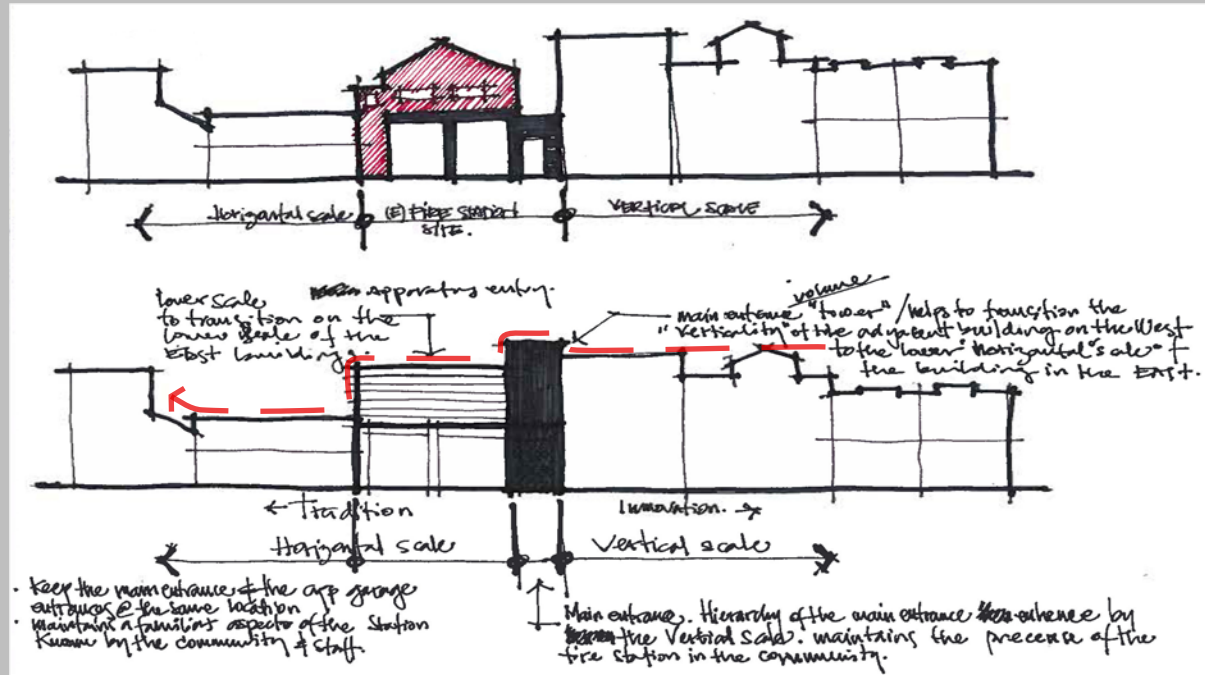 Horizontal scale
(E) FIRE STATION
SITE.
VERTICAL SCALE
lower scale
to transition on the
lower scale of the
East building.
apparatus entry.
volume
main entrance "tower" / helps to transition the
"verticality" of the adjacent building on the West
to the lower "horizontal" scale of
the building in the EAST.
← Tradition
Innovation. →
Horizontal scale
Vertical scale
· Keep the main entrance & the app garage
entrances @ the same location
· maintains a familiar aspects of the Station
Known by the community & staff.
Main entrance. Hierarchy of the main entrance enhence by
the Vertical Scale. maintains the precense of the
fire station in the community.